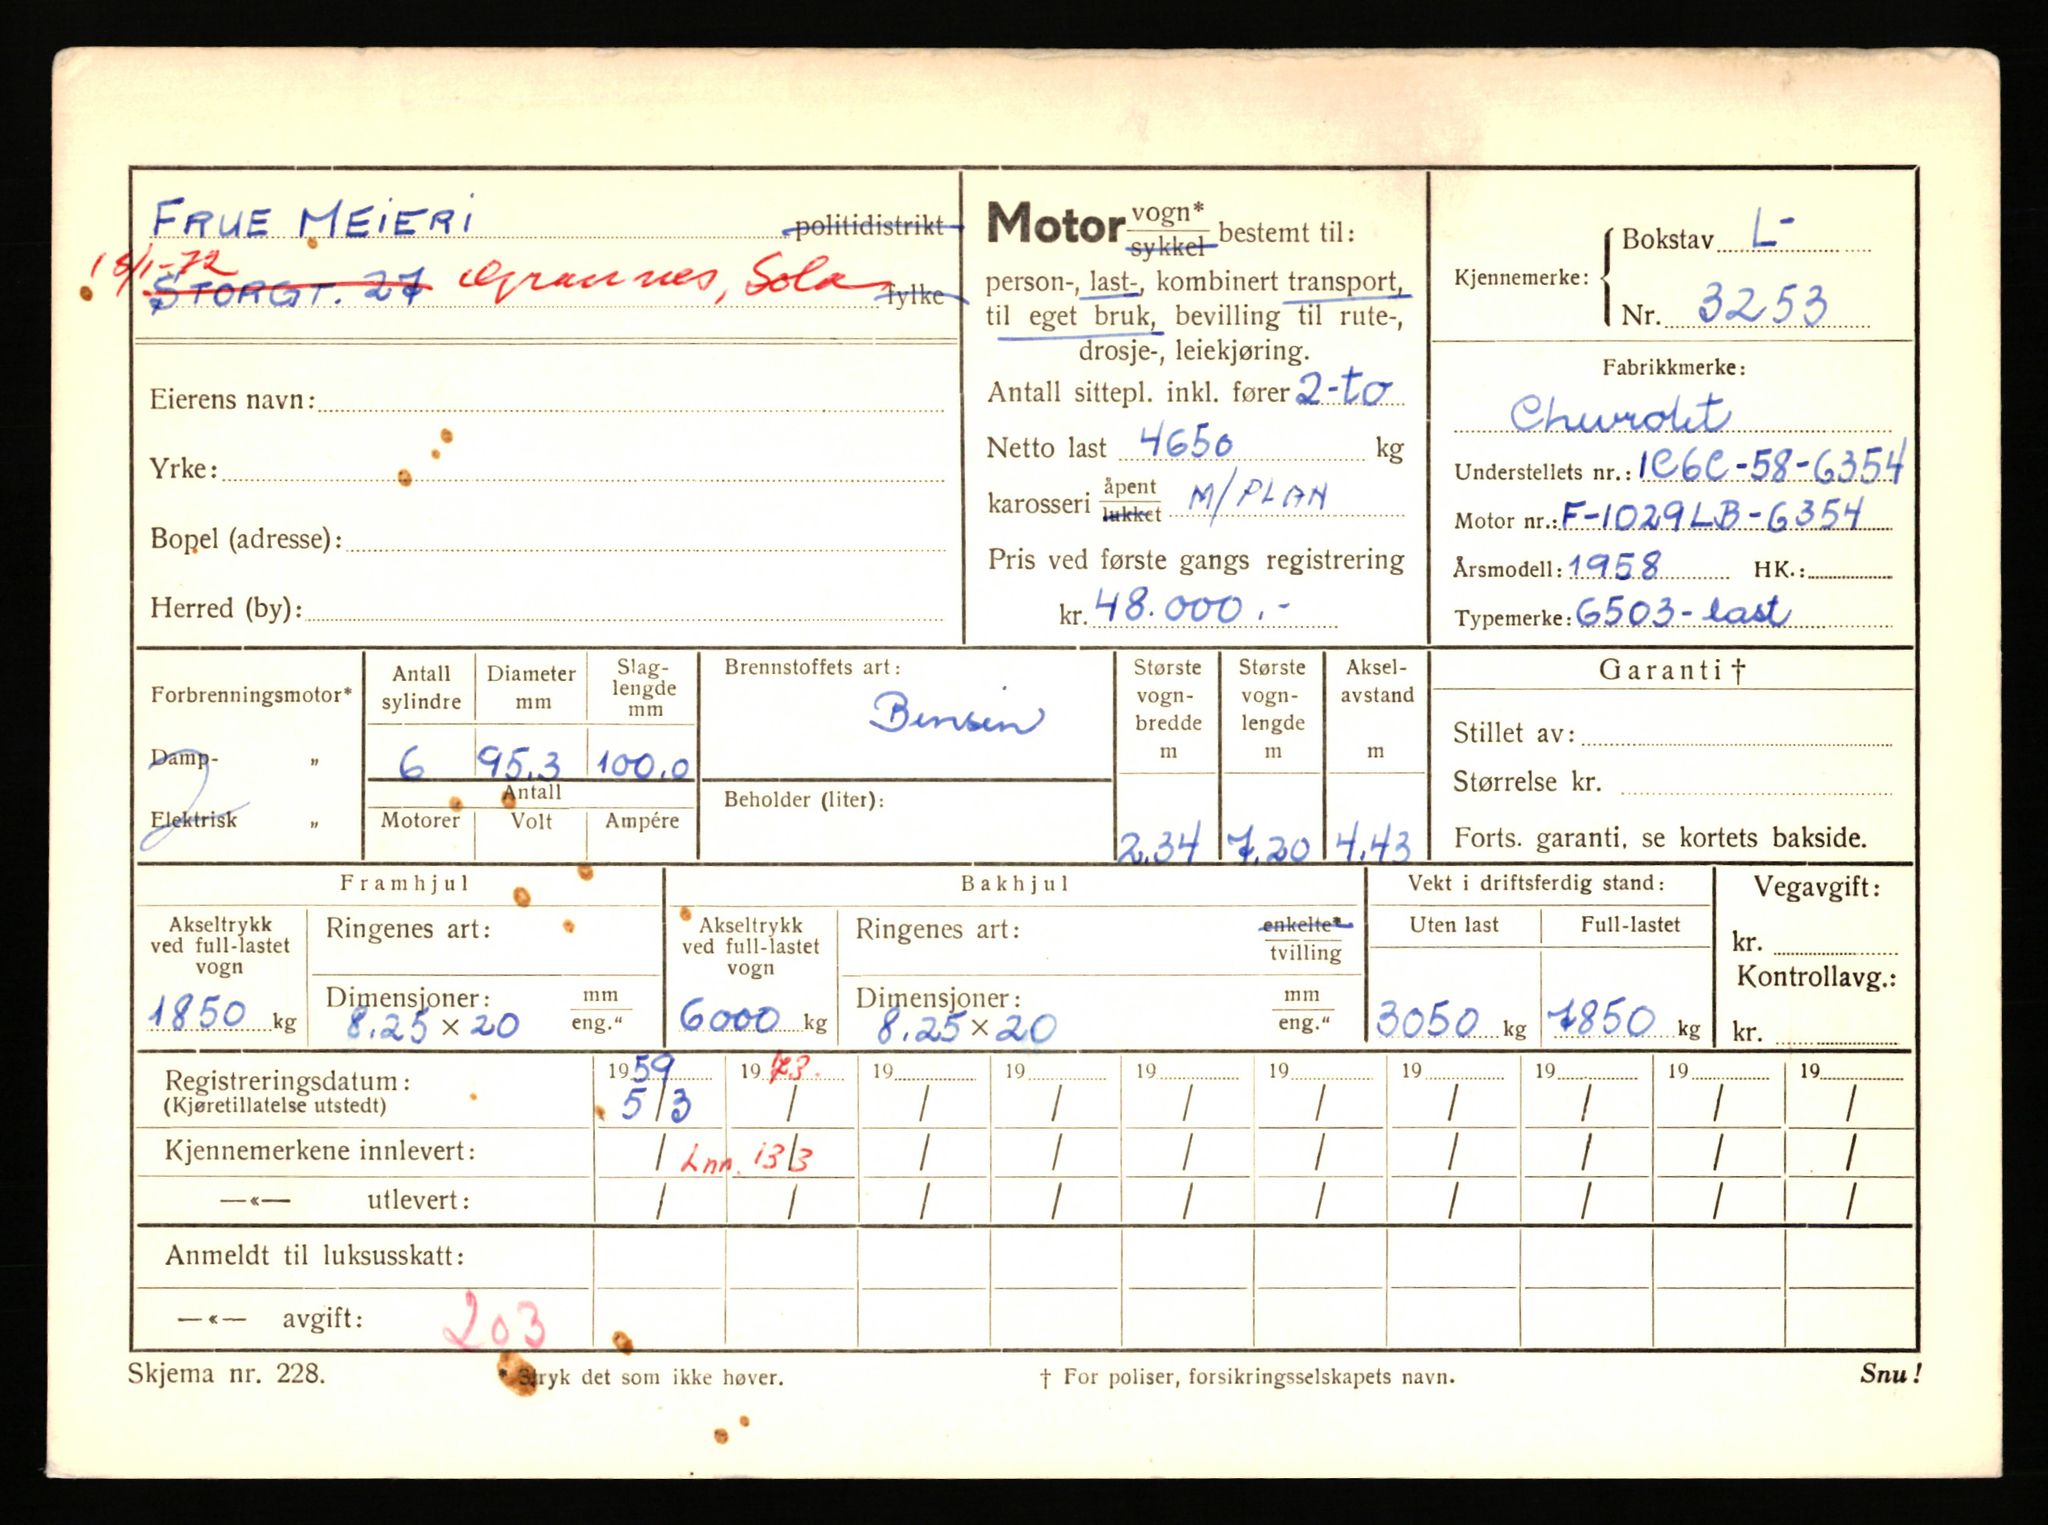 FRUE MEIERI politidistrikt
18/1-72
STORGT. 27 Grannes, Sola fylke
Eierens navn:
Yrke:
Bopel (adresse):
Herred (by):
Motor vogn* sykkel bestemt til:
person-, last-, kombinert transport,
til eget bruk, bevilling til rute-,
drosje-, leiekjøring.
Antall sittepl. inkl. fører 2-to
Netto last 4650 kg
karosseri åpent lukket M/PLAN
Pris ved første gangs registrering
kr. 48.000.-
Kjennemerke: Bokstav L-
Nr. 3253
Fabrikkmerke:
Chevrolet
Understellets nr.: 1C6C-58-6354
Motor nr.: F-1029LB-6354
Årsmodell: 1958 HK.:
Typemerke: 6503-last
Forbrenningsmotor*
Damp- „
Elektrisk „
2
Antall sylindre
Diameter mm
Slag-lengde mm
6 95.3 100.0
Antall
Motorer Volt Ampére
Brennstoffets art:
Bensin
Beholder (liter):
Største vogn-bredde m
2.34
Største vogn-lengde m
7.20
Aksel-avstand m
4.43
Garanti †
Stillet av:
Størrelse kr.
Forts. garanti, se kortets bakside.
Framhjul
Akseltrykk ved full-lastet vogn
1850 kg
Ringenes art:
Dimensjoner: mm eng.“
8.25 × 20
Bakhjul
Akseltrykk ved full-lastet vogn
6000 kg
Ringenes art: enkelte* tvilling
Dimensjoner: mm eng.“
8.25 × 20
Vekt i driftsferdig stand:
Uten last Full-lastet
3050 kg 7850 kg
Vegavgift:
kr.
Kontrollavg.:
kr.
Registreringsdatum: 1959 1973. 19 19 19 19 19 19 19 19
(Kjøretillatelse utstedt) 5/3 / / / / / / / / /
Kjennemerkene innlevert: / Inn. 13/3 / / / / / / / /
—«— utlevert: / / / / / / / / / /
Anmeldt til luksusskatt:
—«— avgift: 203
Skjema nr. 228. * Stryk det som ikke høver. † For poliser, forsikringsselskapets navn. Snu!